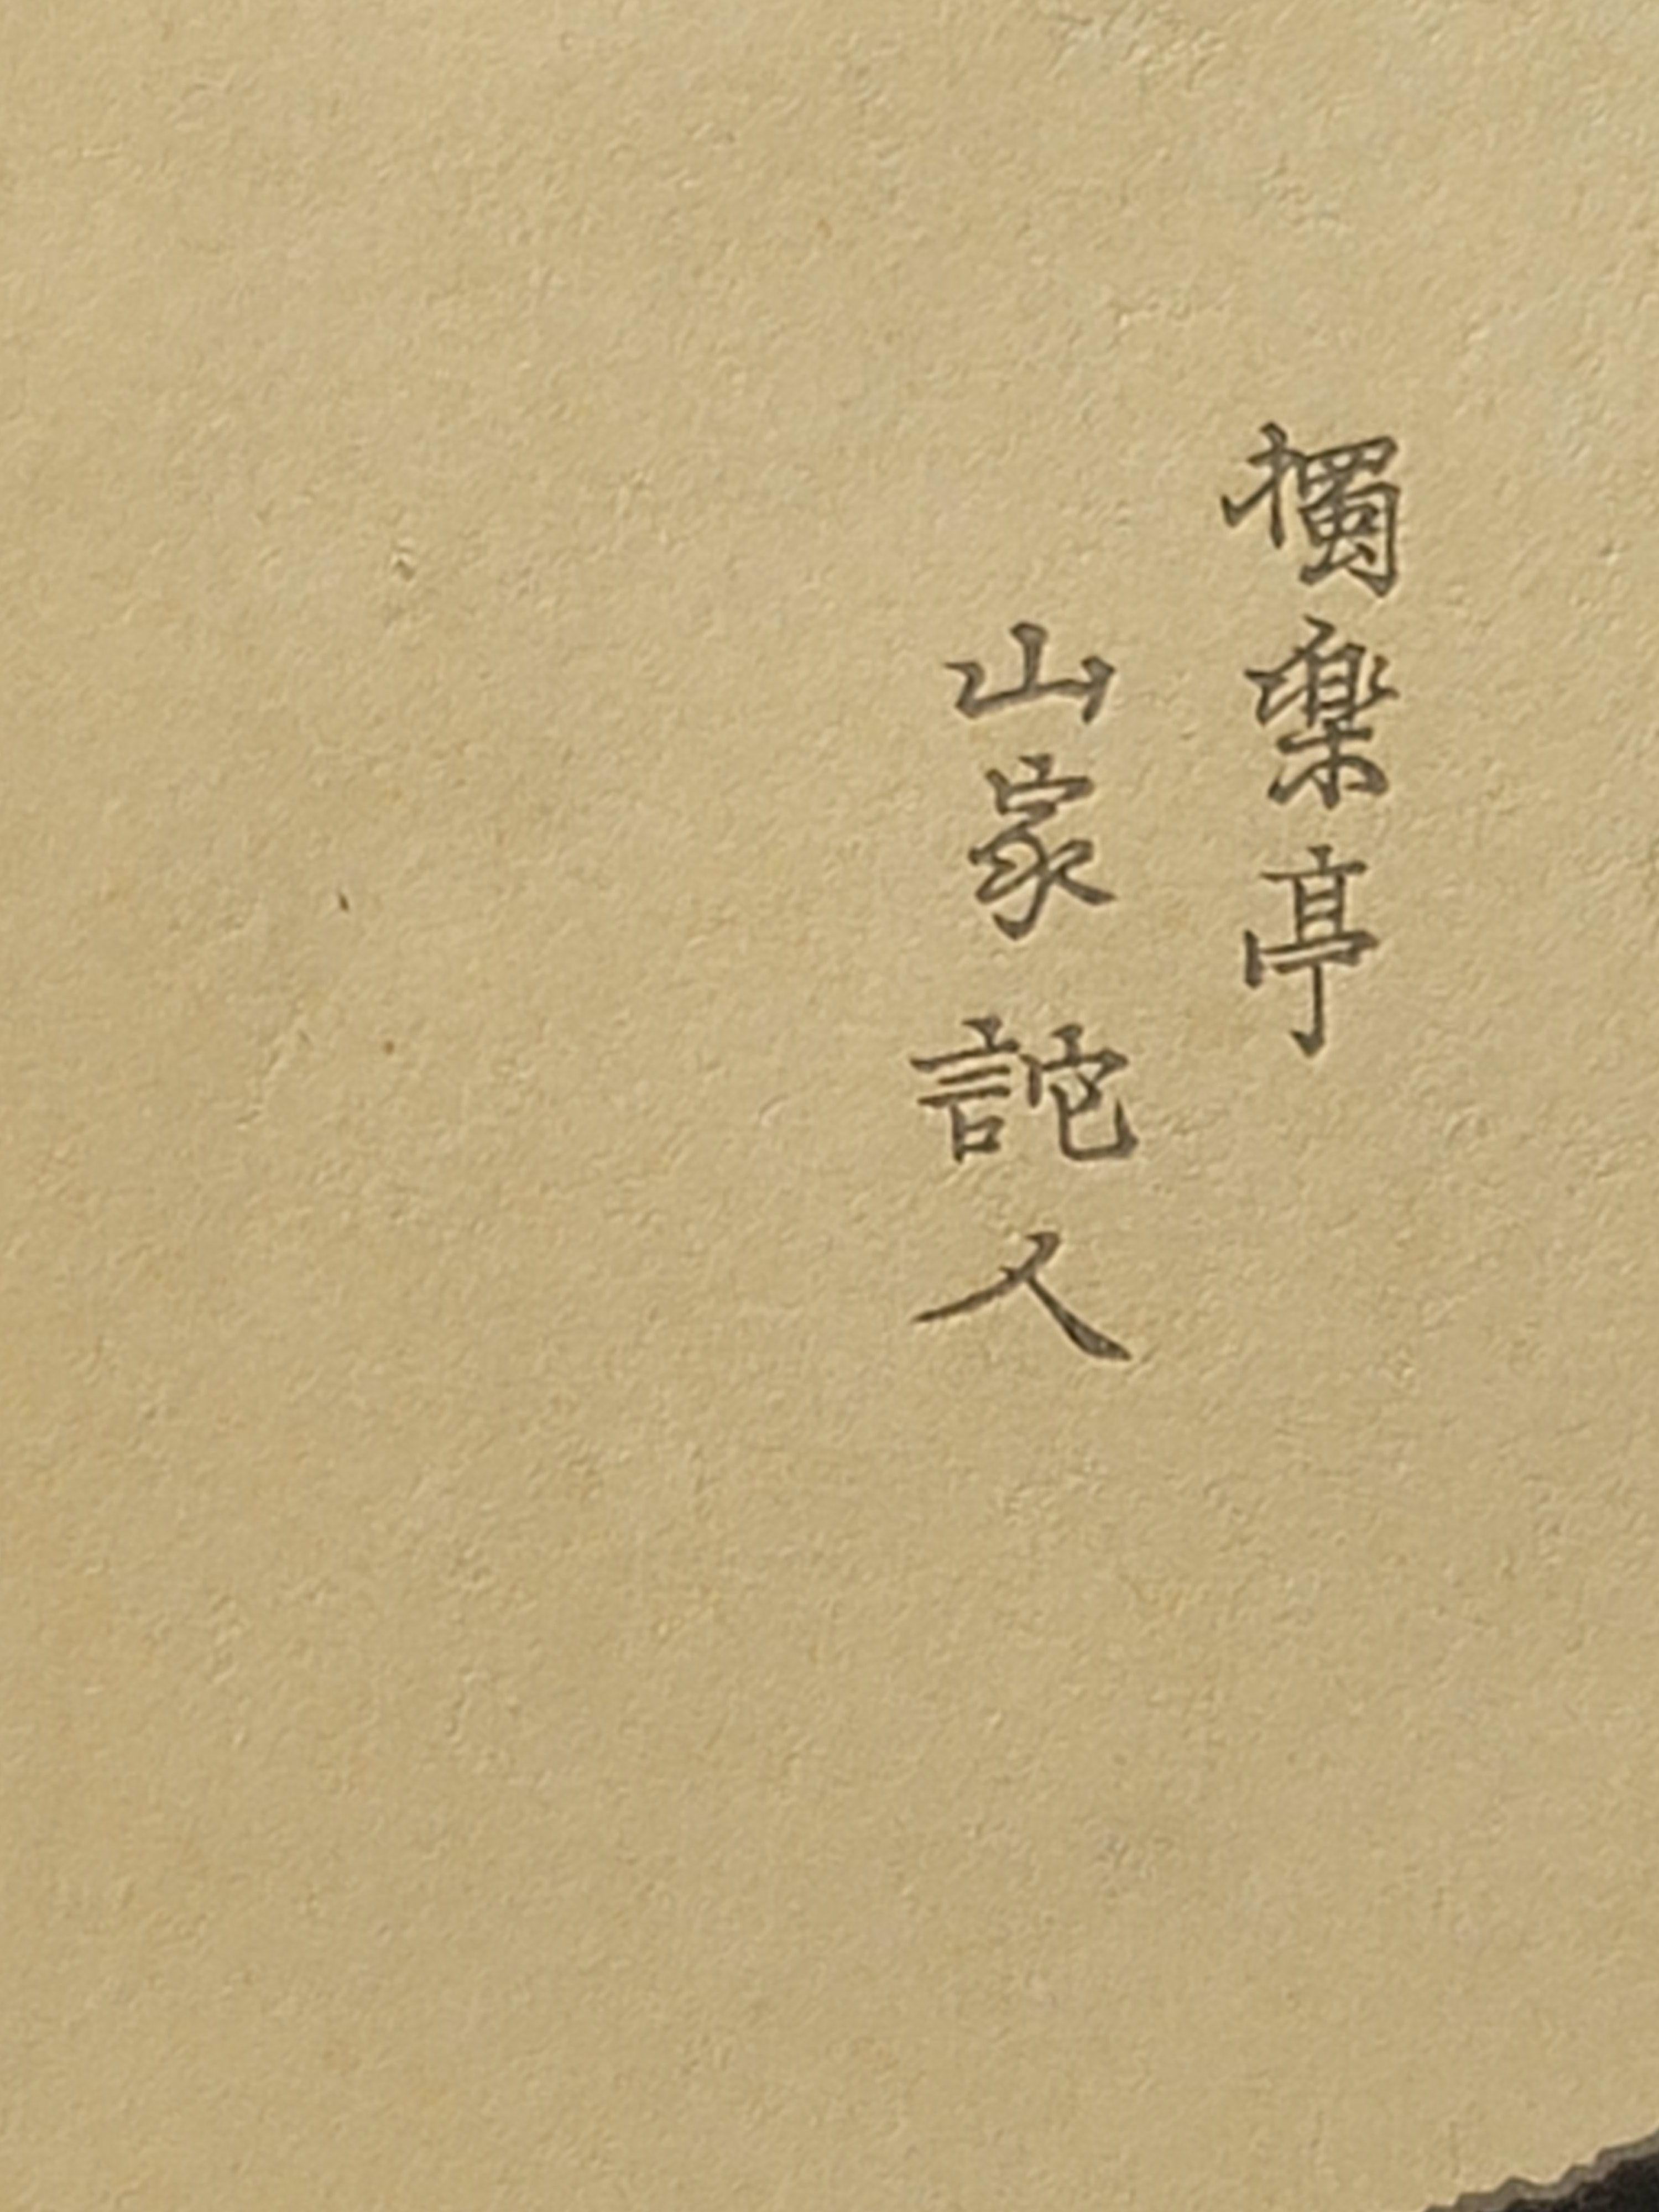 獨樂亭
山家詫人